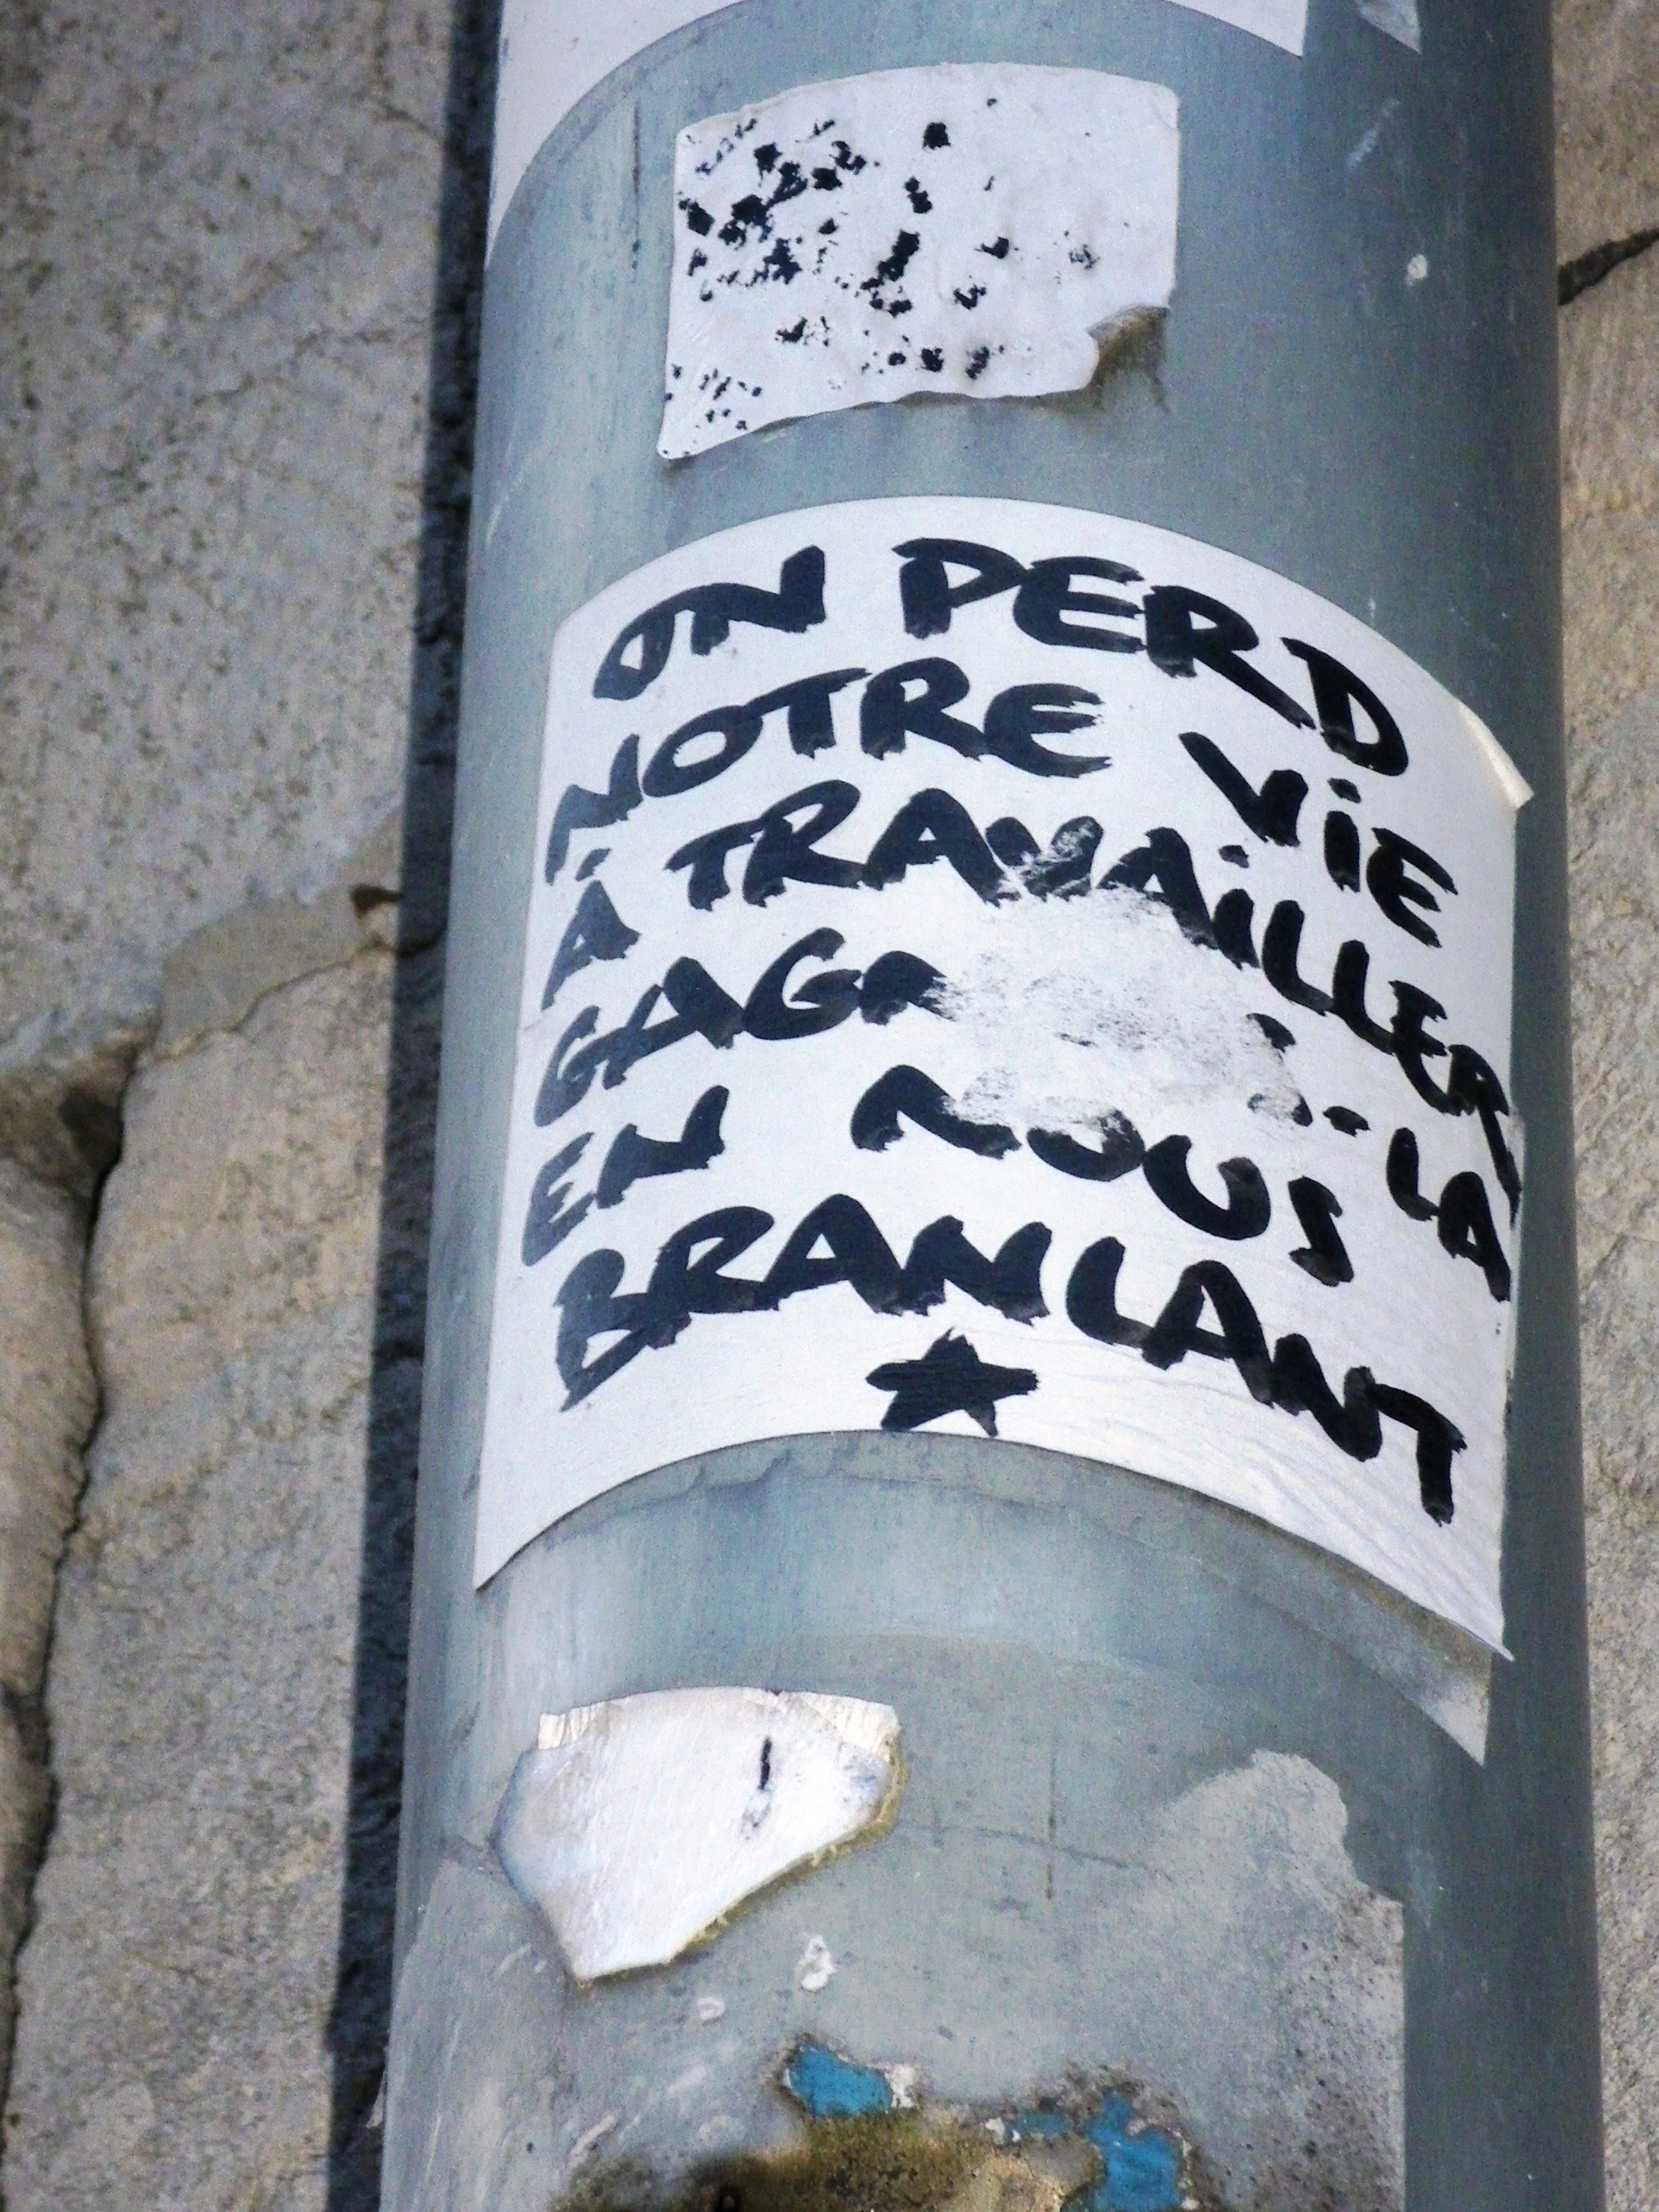 ON PERD
NOTRE ViE
À TRAVAiLLER
LA
EN NOUS
BRANLANT